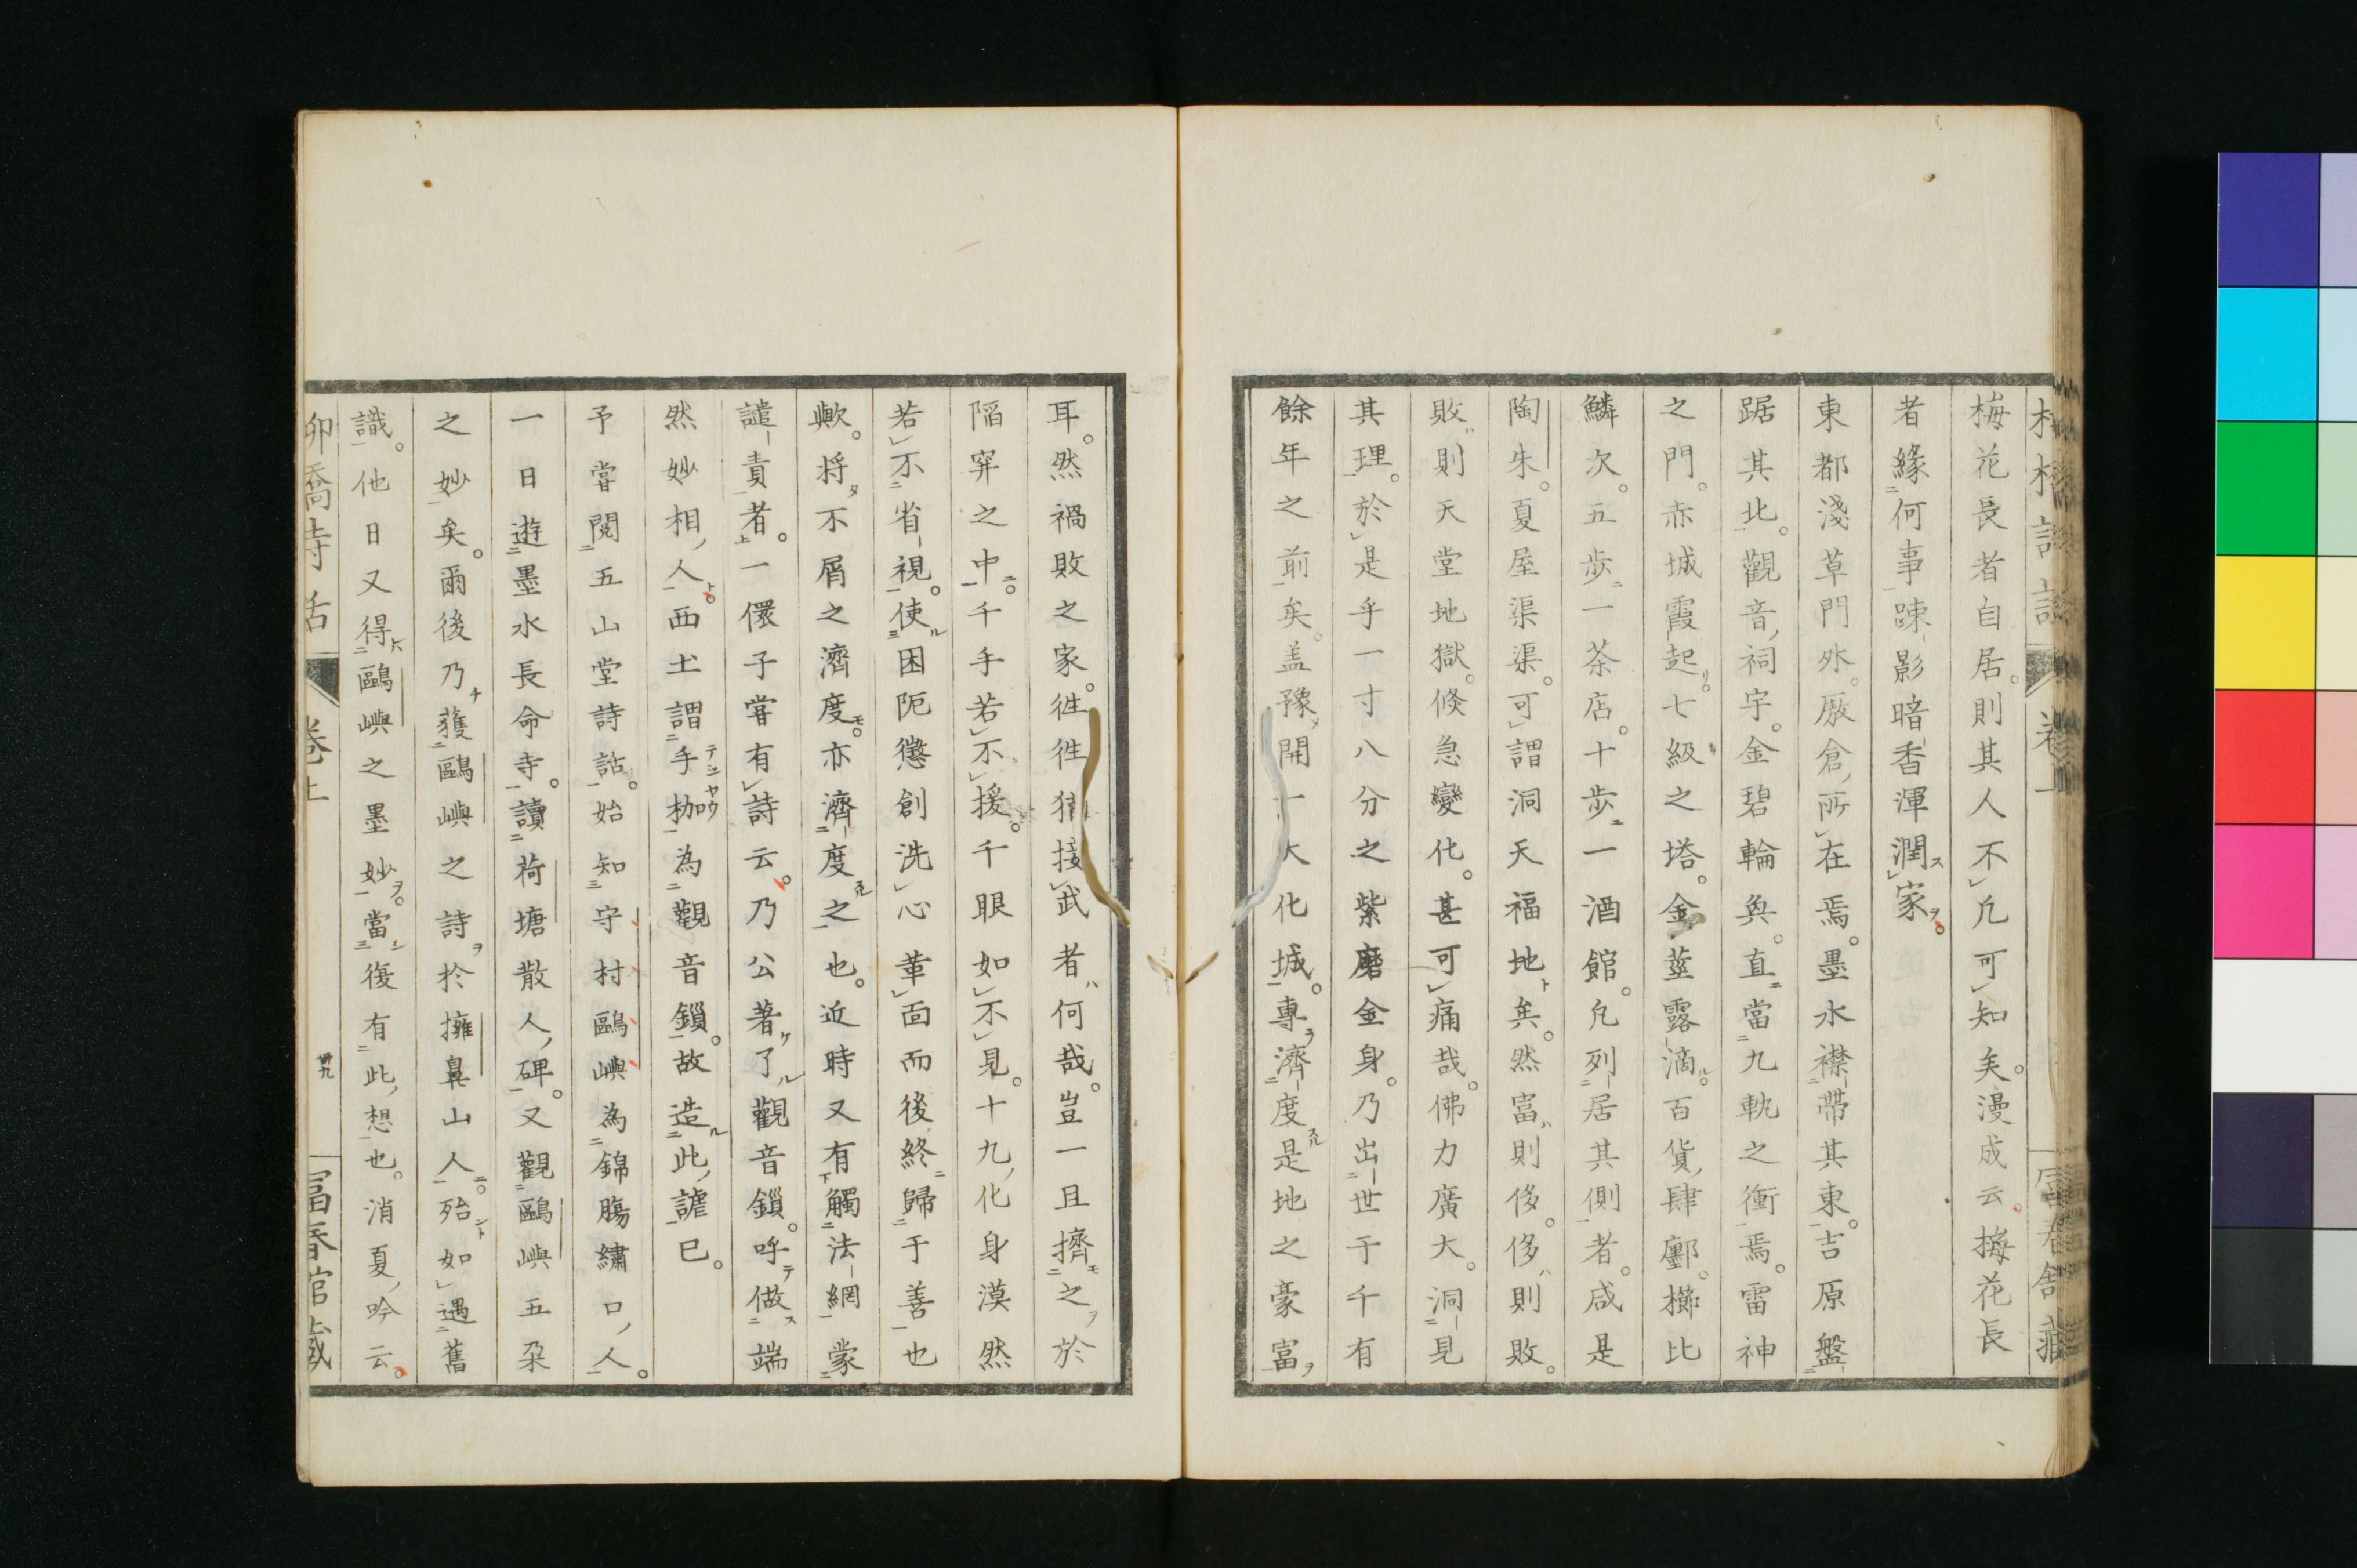 梅花長者自居。則其人不凢可知矣。漫成云。梅花長
者緣何事。疎影暗香渾潤家。
東都淺草門外。厫倉所在焉。墨水襟帶其東。吉原盤
踞其北。觀音祠宇。金碧輪奐。直當九軌之衝焉。雷神
之門。赤城霞起。七級之塔。金莖露滴。百貨肆鄽。櫛比
鱗次。五歩一茶店。十歩一酒館。凢列居其側者。咸是
陶朱。夏屋渠渠。可謂洞天福地矣。然富則侈。侈則敗。
敗則天堂地獄。倏急變化。甚可痛哉。佛力廣大。洞見
其理。於是乎一寸八分之紫磨金身。乃出世于千有
餘年之前矣。盖豫開一大化城。專濟度是地之豪富
耳。然禍敗之家。徃徃接武者何哉。豈一且擠之於
陷穽之中。千手若不援。千眼如不見。十九化身漠然
若不省視。使困阨懲創洗心革面而後終歸于善也
歟。将不屑之濟度。亦濟度之也。近時又有觸法網蒙
譴責者。一儇子甞有詩云。乃公著了觀音鎖。呼做端
然妙相人。西土謂手枷為觀音鎖。故造此謔已。
テシヤウ
予甞閲五山堂詩話。始知守村鷗嶼為錦膓繡口人。
一日遊墨水長命寺。讀荷塘散人碑。又觀鷗嶼五朶
之妙妙矣。爾後乃獲鷗嶼之詩於擁鼻山人。殆如遇舊
識。他日又得鷗嶼之墨妙。當復有此想也。消夏吟云。
柳橋詩話
卷上
卅九
冨春館藏